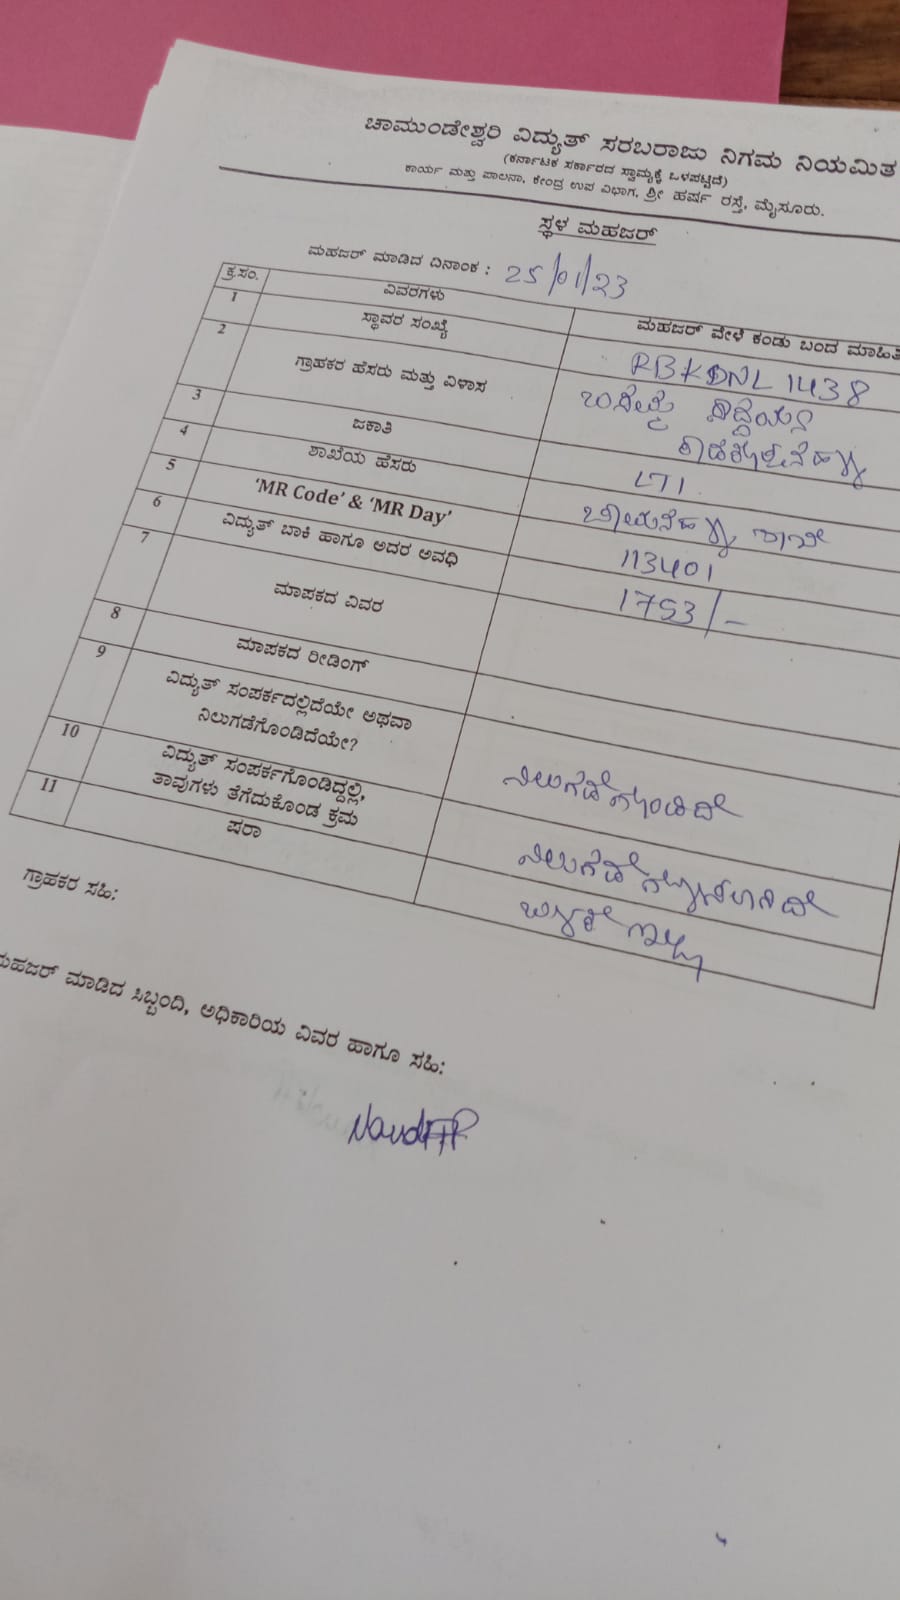 ಚಾಮುಂಡೇಶ್ವರಿ ವಿದ್ಯುತ್ ಸರಬರಾಜು ನಿಗಮ ನಿಯಮಿತ
(ಕರ್ನಾಟಕ ಸರ್ಕಾರದ ಸ್ವಾಮ್ಯಕ್ಕೆ ಒಳಪಟ್ಟಿದೆ)
ಕಾರ್ಯ ಮತ್ತು ಪಾಲನಾ, ಕೇಂದ್ರ ಉಪ ವಿಭಾಗ, ಶ್ರೀ ಹರ್ಷ ರಸ್ತೆ, ಮೈಸೂರು.
ಸ್ಥಳ ಮಹಜರ್
ಮಹಜರ್ ಮಾಡಿದ ದಿನಾಂಕ : 25/01/23
ಕ್ರ.ಸಂ. ವಿವರಗಳು ಮಹಜರ್ ವೇಳೆ ಕಂಡು ಬಂದ ಮಾಹಿತಿ
1 ಸ್ಥಾವರ ಸಂಖ್ಯೆ RBKDNL 1438
2 ಗ್ರಾಹಕರ ಹೆಸರು ಮತ್ತು ವಿಳಾಸ
3 ಜಕಾತಿ LT1
4 ಶಾಖೆಯ ಹೆಸರು
5 'MR Code' & 'MR Day' 113401
6 ವಿದ್ಯುತ್ ಬಾಕಿ ಹಾಗೂ ಅದರ ಅವಧಿ 1753/-
7 ಮಾಪಕದ ವಿವರ
8 ಮಾಪಕದ ರೀಡಿಂಗ್
9 ವಿದ್ಯುತ್ ಸಂಪರ್ಕದಲ್ಲಿದೆಯೇ ಅಥವಾ
ನಿಲುಗಡೆಗೊಂಡಿದೆಯೇ? ನಿಲುಗಡೆಗೊಂಡಿದೆ
10 ವಿದ್ಯುತ್ ಸಂಪರ್ಕಗೊಂಡಿದ್ದಲ್ಲಿ,
ತಾವುಗಳು ತೆಗೆದುಕೊಂಡ ಕ್ರಮ
11 ಷರಾ
ಗ್ರಾಹಕರ ಸಹಿ:
ಮಹಜರ್ ಮಾಡಿದ ಸಿಬ್ಬಂದಿ, ಅಧಿಕಾರಿಯ ವಿವರ ಹಾಗೂ ಸಹಿ: